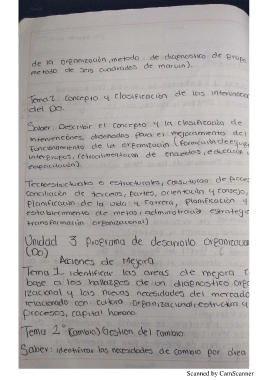 de la organización, metodo de diagnostico de grupo
metodo de seis cuadrados de marvin).
Tema 2 Concepto y clasificación de las intervencion
del DO.
Saber: Describir el concepto y la clasificación de
intervenciones diseñadas para el mejoramiento del
Funcionamiento de la organización (Formación de equi
intergrupos, retroalimentación de encuestas, educación y
capacitación).
Tecnoestructurales o estructurales, consultoria de proces
conciliación de terceros, partes, orientación y consejo,
planificación de la vida y carrera, planificación y
establecimiento de metas, administración estrategic
transformación organizacional)
Unidad 3 programa de desarrollo organizacion
(DO)
Acciones de Mejora.
Tema 1. identificar las areas de mejora c
base a los hallazgos de un diagnostico orga
izacional y las nuevas necesidades del mercado
relacionado con cultura organizacional, estructura y
procesos, capital humano.
Tema 2° (Cambio) Gestion del cambio
Saber: identificar las necesidades de cambio por area
Scanned by CamScanner